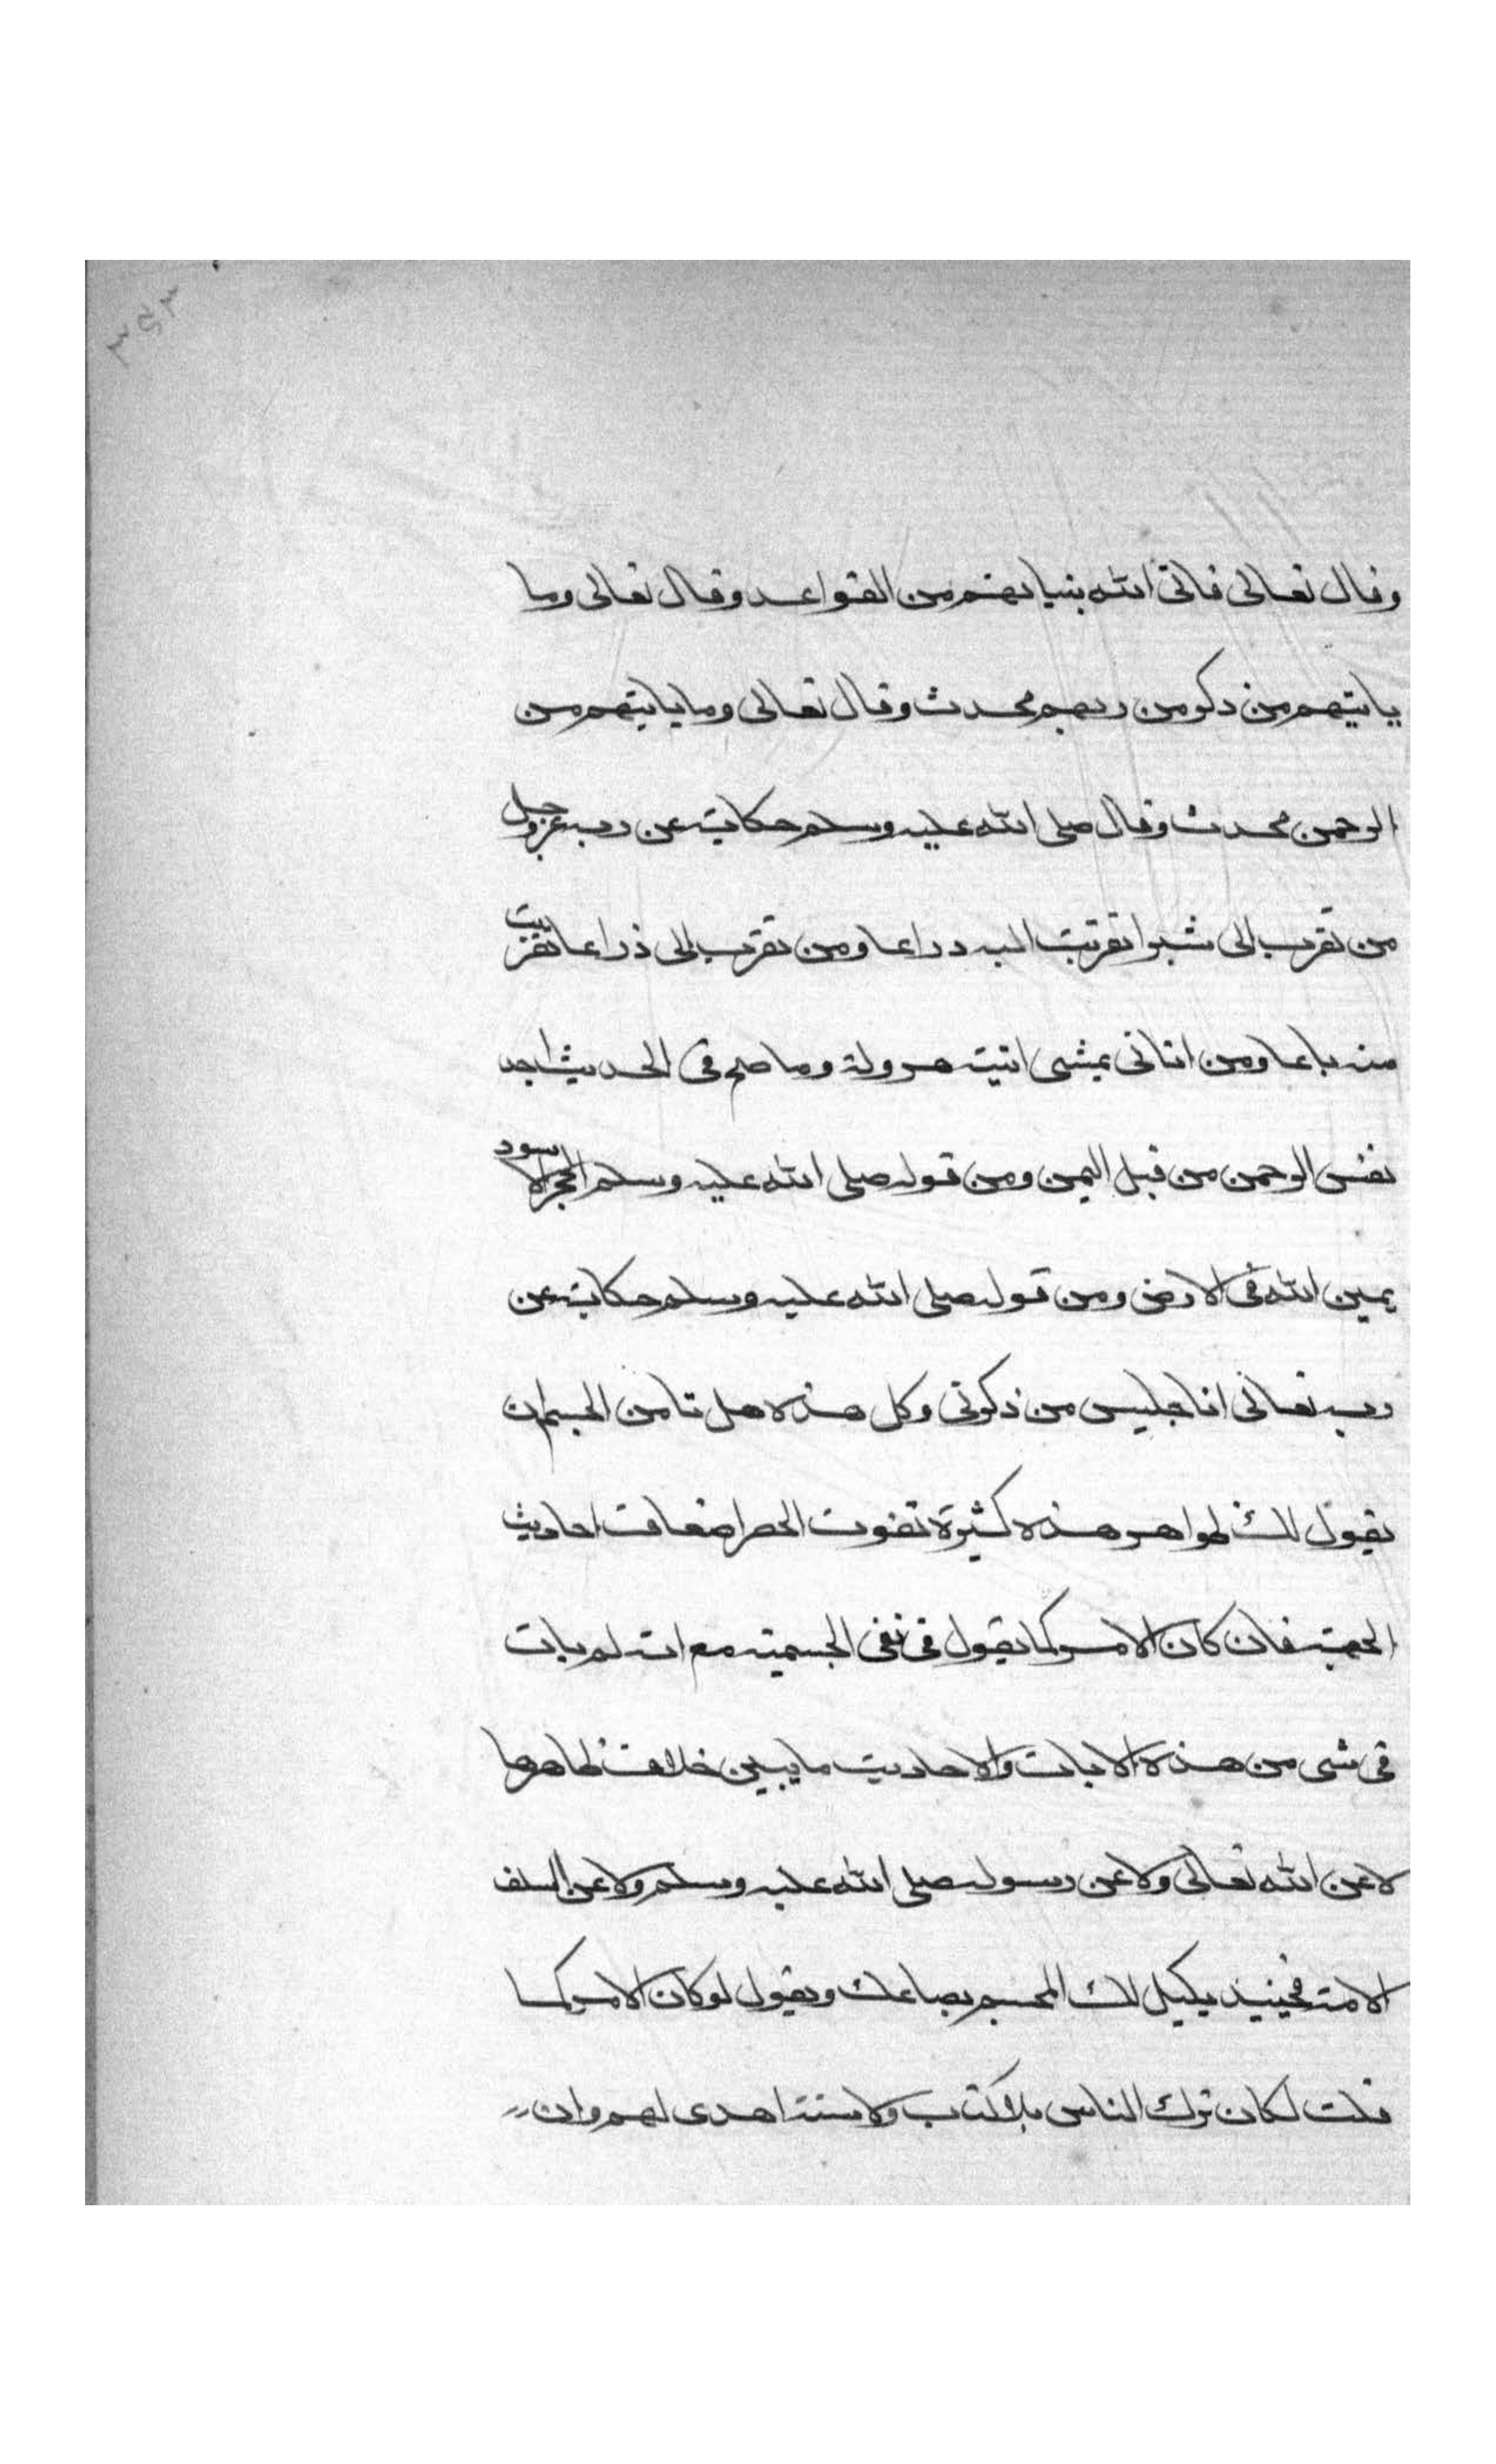 ٣٩٣
وقال تعالى فاتى الله بنيانهم من القواعد وقال تعالى وما
ياتيهم من ذكر من ربهم محدث وقال تعالى وما ياتيهم من
الرحمن محدث وقال صلى الله عليه وسلم حكاية عن ربه عز وجل
من تقرب الى شبرا تقربت اليه دراعا ومن تقرب الى ذراعا تقربت
منه باعا ومن اتانى يمشى اتيته هرولة وما صح فى الحديث اجد
نفس الرحمن من قبل اليمن ومن قوله صلى الله عليه وسلم الحجر الاسود
يمين الله فى الارض ومن قوله صلى الله عليه وسلم حكاية عن
ربه تعالى انا جليس من ذكرنى وكل هذه هل تامن المجسم ان
يقول لك ظواهر هذه كثيرة تفوت الحصر اضعاف احاديث
الجهة فان كان الامر كما يقول فى نفى الجسمية مع انه لم يات
فى شى من هذه الايات والاحاديث ما يبين خلاف ظاهرها
لا عن الله تعالى ولا عن رسوله صلى الله عليه وسلم ولا عن السلف
الامة فحينيذ يكيل لك المجسم بصاعك ويقول لو كان الامر كما
قلت لكان ترك الناس بلا كتاب ولا سنة اهدى لهم وان